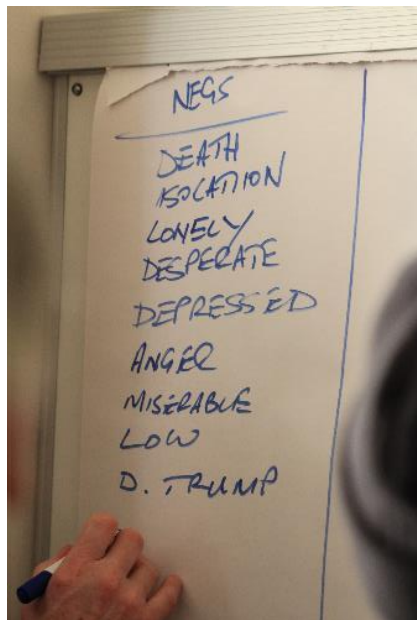 NEGS
DEATH
ISOLATION
LONELY
DESPERATE
DEPRESSED
ANGER
MISERABLE
LOW
D. TRUMP